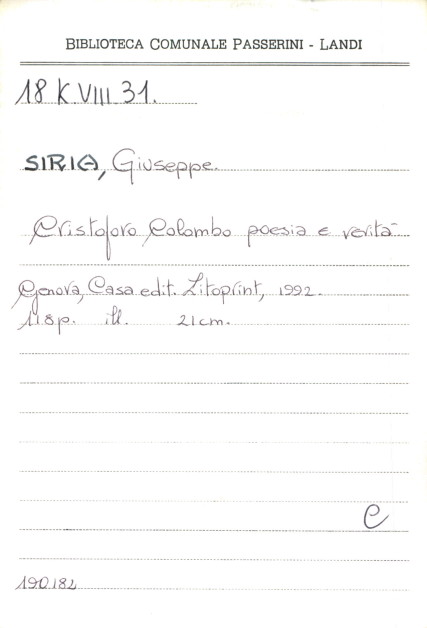 BIBLIOTECA COMUNALE PASSERINI - LANDI
18 K VIII 31.
SIRIA, Giuseppe.
Cristoforo Colombo poesia e verità
Genova, Casa edit. Litoprint, 1992.
118p. ill. 21cm.
C
190182